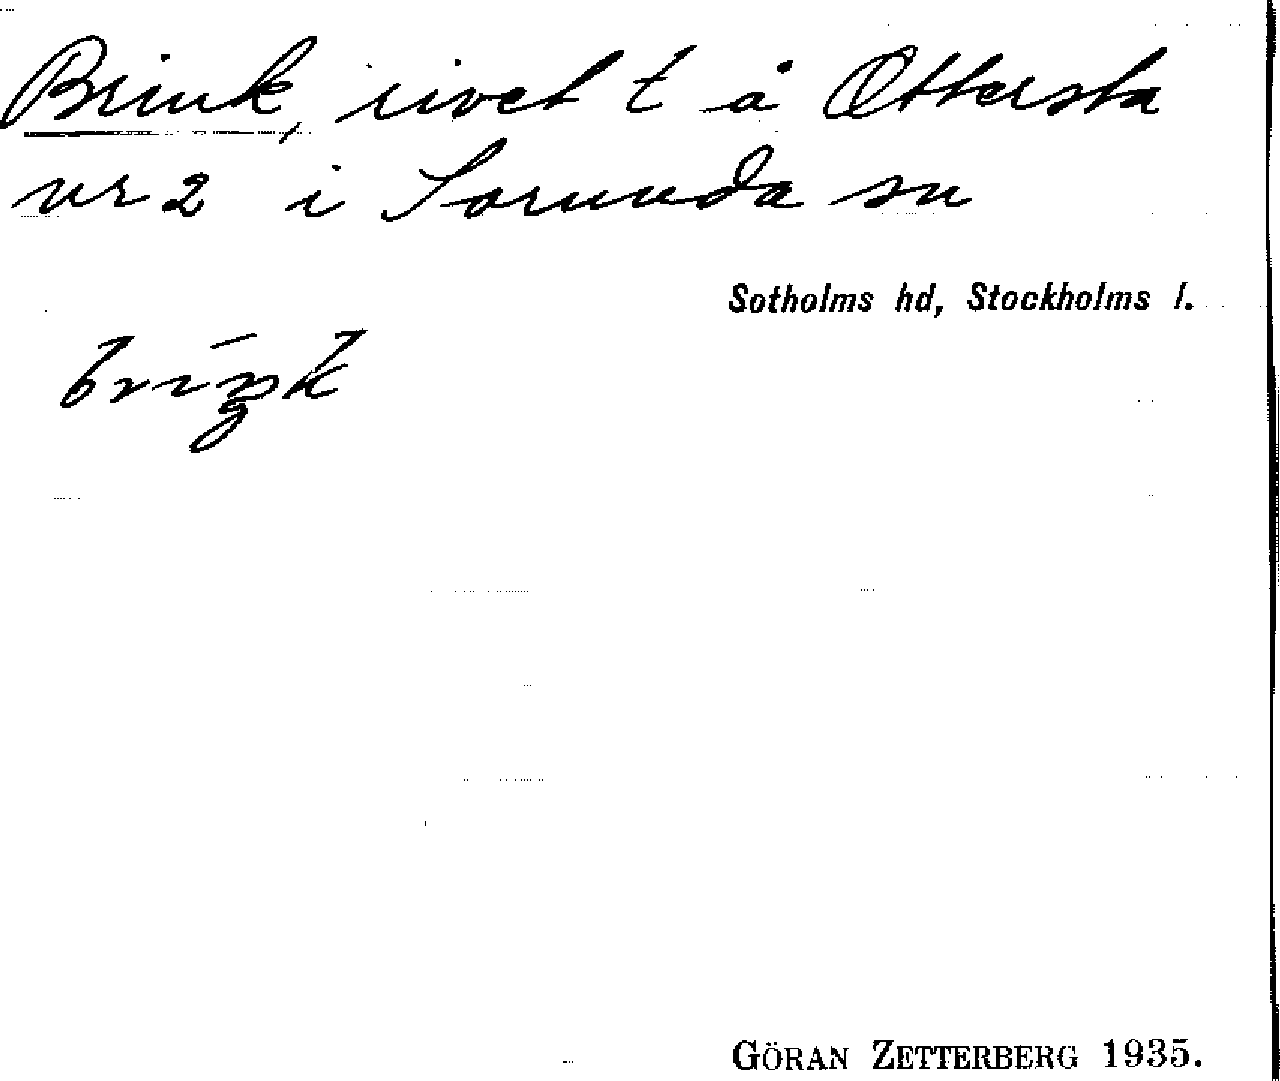 Brink, rivet t å Ottersta
nr 2 i Sorunda sn
Sotholms hd, Stockholms l.
GÖRAN ZETTERBERG 1935.